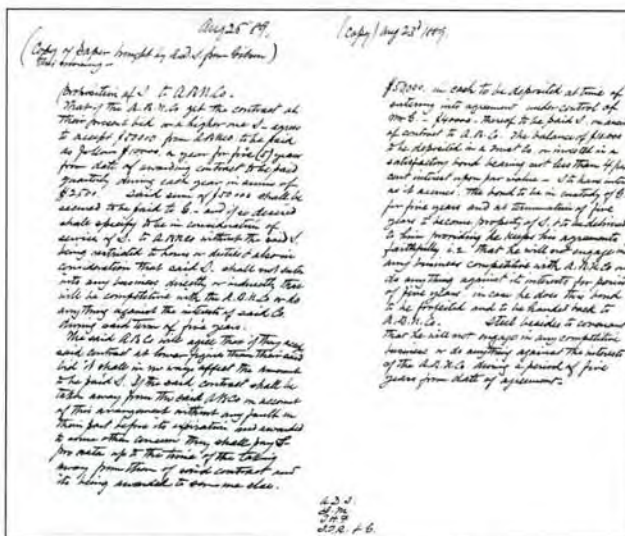 Aug 25 89.
(Copy of Paper brought by
this morning -
Proposition of S to A.B.N.Co.
That if the A.B.N.Co get the contract at
their present bid or a higher one S- agrees
to accept $50000 from A.B.N.Co. to be paid
as follows $10000. a year for five (5) years
from date of awarding contract to be paid
quarterly during each year in sums of
$2500. Said sum of $50000 shall be
secured to be paid to C- and if so desired
shall specify to be in consideration of
service of S. to A.B.N.Co without the said S.
being restricted to hours or duties & also in
consideration that said S. shall not enter
into any business directly or indirectly that
will be competitive with the A.B.N.Co or do
anything against the interest of said Co.
during said term of five years.
The said A.B.Co will agree that if they get
said contract at lower figure than their said
bid it shall in no way affect the amount
to be paid S. If the said contract shall be
taken away from the said A.B.Co on account
of this arrangement without any fault on
their part before its expiration and awarded
to some other concern they shall pay S.
pro rata up to the time of the taking
away from them of said contract and
its being awarded to someone else.
(Copy) Aug 23d 1889.
$50000. in cash to be deposited at time of
entering into agreement under control of
Mr C- $40000- thereof to be paid S. on
of contract to A.B.Co. The balance of
to be deposited in a Trust Co, or invested in a
satisfactory bond bearing not less than 4 per
cent interest upon par value - S to have
as it accrues. The bond to be in custody of C.
for five years and at termination of five
years to become property of S. & to be delivered
to him providing he keeps his agreements
faithfully i.e. that he will not engage in
any business competitive with A.B.N.Co or
do anything against its interests for period
of five years. in case he does this bond
to be forfeited and to be handed back to
A.B.N.Co. Steel besides to covenant
that he will not engage in any competitive
business or do anything against the interests
of the A.B.N.Co during a period of five
years from date of agreement.
A.D.S.
J.H.F